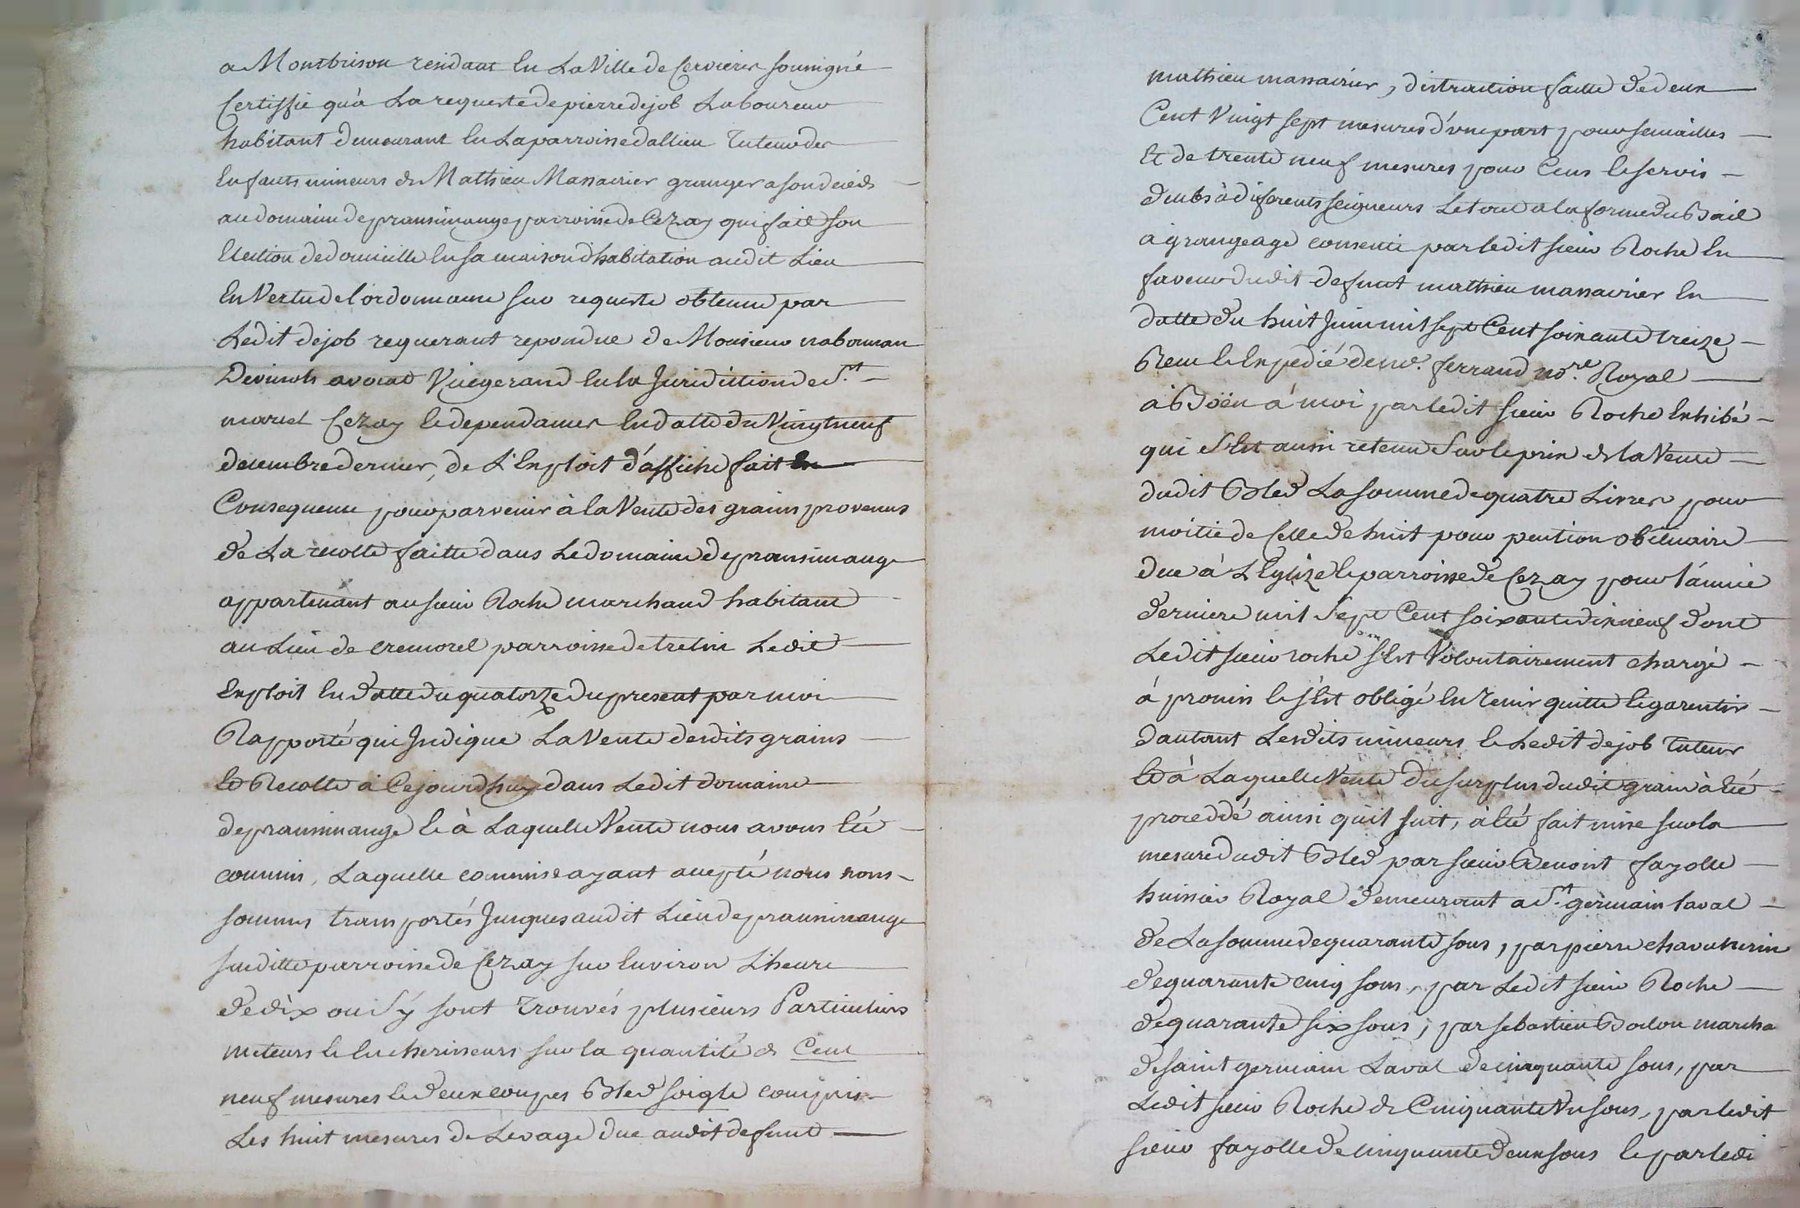 a Montbrison residant en La Ville de Cervieres soussigné
Certiffie qu'a La requeste de pierre dejob Laboureur
habitant demeurant en La parroisse dallieu Tuteur des
Enfants mineurs de Mathieu Massacrier granger a son deceds
au domaine de pransimange parroisse de Cezay qui fait son
Election de domicille en sa maison d'habitation audit Lieu
En Vertu de l'ordonnance sur requeste obtenue par
Ledit dejob requerant repondue de Monsieur
avocat Vicegerand en la Juridiction de St
marcel Cezay & dependances en datte du Vingt neuf
decembre dernier, de L'Exploit d'affiche fait En
Consequence pour parvenir à la Vente des grains provenus
de La recolte faitte dans Le domaine de pransimange
appartenant au sieur Roche marchand habitant
au Lieu de cremorel parroisse de trelin Ledit
Exploit en datte du quatorze du present par moi
Rapporté qui Indique La Vente desdits grains
Et Recolte à Cejourd'huy dans Ledit domaine
de pransimange & à Laquelle Vente nous avons Eté
commis, Laquelle commise ayant accepté nous nous
sommes transportés Jusques audit Lieu de pransimange
susditte parroisse de Cezay sur Environ L'heure
de dix ou s'y sont Trouvés plusieurs Particuliers
meteurs & Encherisseurs sur la quantité de Cent
neuf mesures & deux coupes Bled soigle compris
Les huit mesures de Levage due audit defunt
mathieu massacrier, distraction faitte de deux
Cent Vingt sept mesures d'une part pour semailles
Et de trente neuf mesures pour Cens & servis
deubs à diferents seigneurs Le tout a la forme du Bail
a grangeage consenti par ledit sieur Roche En
faveur dudit defunt mathieu massacrier En
datte du huit Juin mil sept Cent soixante treize
Receu & Expedié de me. ferrand nore. Royal
à Boën à moi par ledit sieur Roche Exhibé
qui s'Est aussi retenu sur le prix de la Vente
dudit Bled La somme de quatre Livres pour
moitié de Celle de huit pour pention obituaire
due à L'Eglize & parroisse de Cezay pour l'année
derniere mil Sept Cent soixante dix neuf dont
Ledit sieur roche s'Est Volontairement chargé
à promis & s'Est obligé En Tenir quitte & garentir
d'autant Lesdits mineurs & Ledit dejob Tuteur
Et à Laquelle Vente du surplus dudit grain à Eté
proceddé ainsi qu'il suit, à Eté fait mise sur la
mesure dudit Bled par sieur Benoist fayolle
huissier Royal demeurant a St. germain laval
de La somme de quarante sous, par pierre
de quarante cinq sous, par Ledit sieur Roche
de quarante six sous, par sebastien marcha
de saint germain Laval de cinquante sous, par
Ledit sieur Roche de Cinquante Un sous, par ledit
sieur fayolle de cinquante deux sous & par ledi